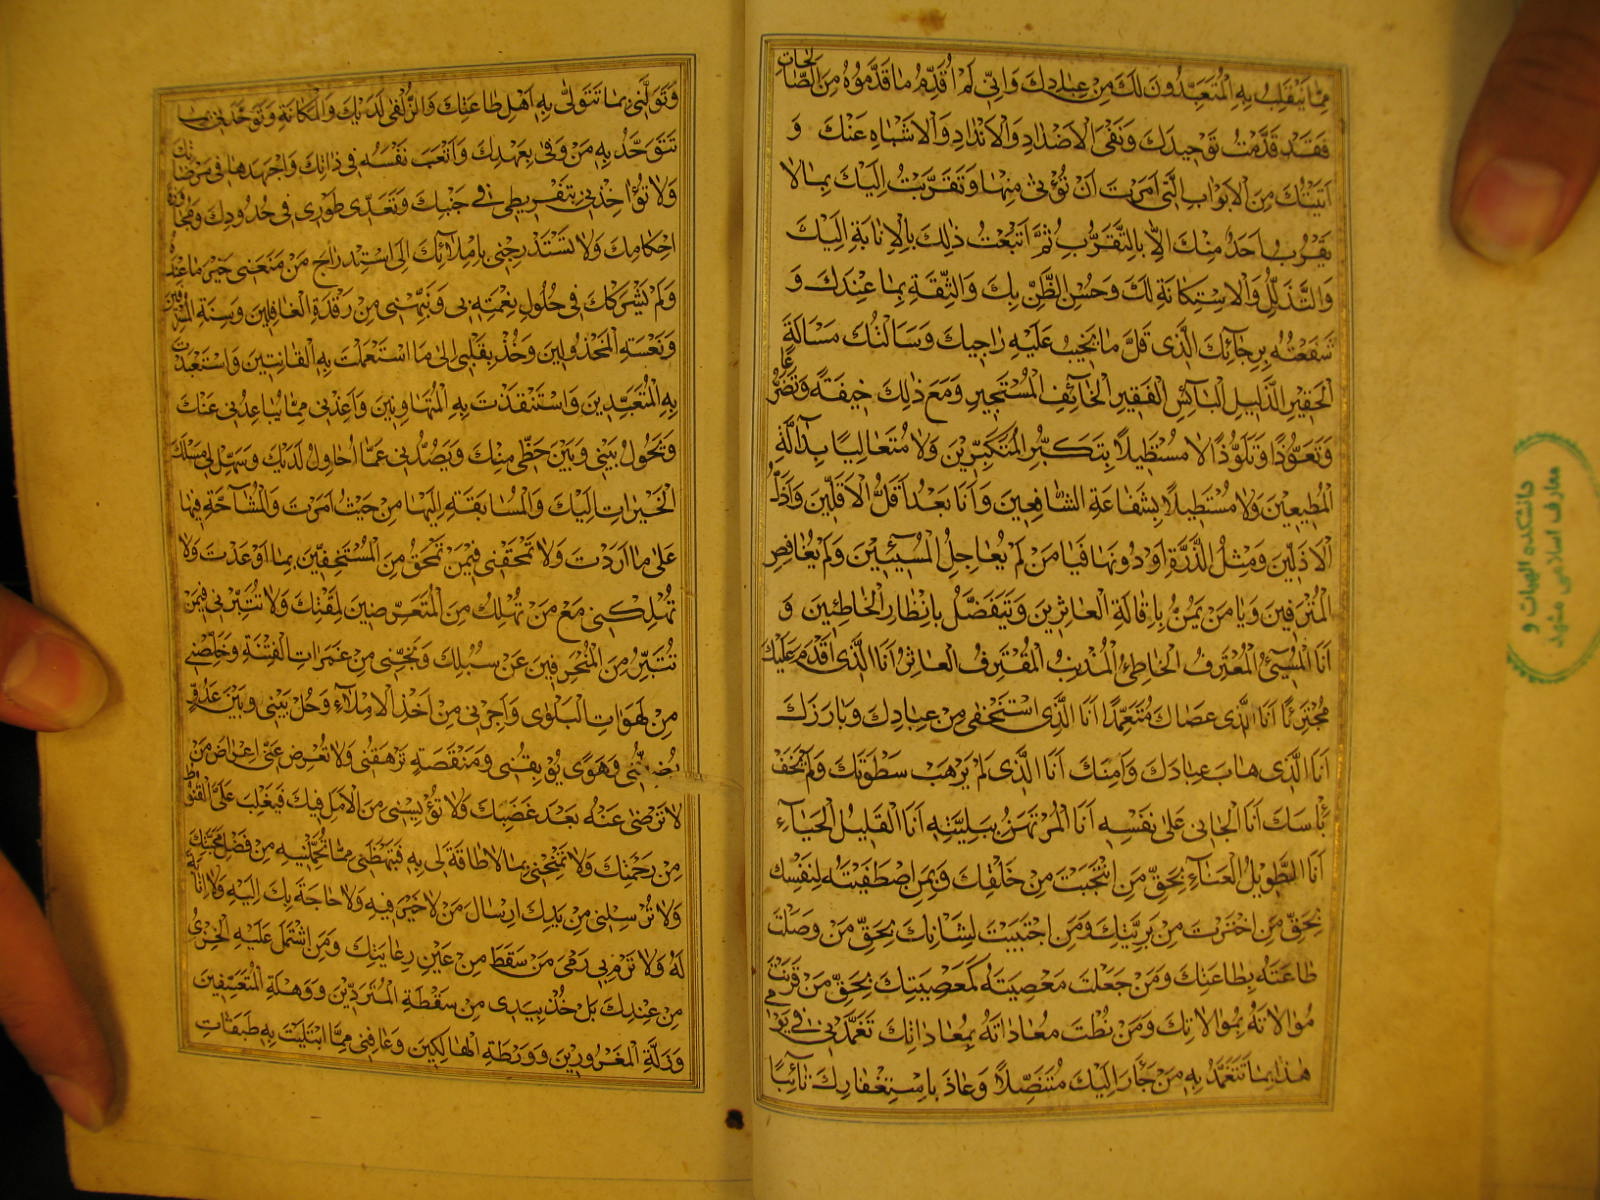 مِمَّا يَنْقَلِبُ بِهِ الْمُتَعَبِّدُونَ لَكَ مِنْ عِبَادِكَ وَاِنّي لَمْ اُقَدِّمْ مَا قَدَّمُوهُ مِنَ الصَّالِحَاتِ
فَقَدْ قَدَّمْتُ تَوْحِيدَكَ وَنَفْيَ الْاَضْدَادِ وَالْاَنْدَادِ وَالْاَشْبَاهِ عَنْكَ وَ
اَتَيْتُكَ مِنَ الْاَبْوَابِ الَّتي اَمَرْتَ اَنْ تُؤْتى مِنْهَا وَتَقَرَّبْتُ اِلَيْكَ بِمَا لَا
يَقْرُبُ اَحَدٌ مِنْكَ اِلَّا بِالتَّقَرُّبِ ثُمَّ اَتْبَعْتُ ذلِكَ بِالْاِنَابَةِ اِلَيْكَ
وَالتَّذَلُّلِ وَالْاِسْتِكَانَةِ لَكَ وَحُسْنِ الظَّنِّ بِكَ وَالثِّقَةِ بِمَا عِنْدَكَ وَ
شَفَعْتُهُ بِرَجَائِكَ الَّذى قَلَّ مَا يَخِيبُ عَلَيْهِ رَاجِيكَ وَسَاَلْتُكَ مَسْاَلَةَ
الْحَقِيرِ الذَّلِيلِ الْبَائِسِ الْفَقِيرِ الْخَائِفِ الْمُسْتَجِيرِ وَمَعَ ذلِكَ خِيفَةً وَتَضَرُّعًا
وَتَعَوُّذًا وَتَلَوُّذًا لَا مُسْتَطِيلًا بِتَكَبُّرِ الْمُتَكَبِّرِينَ وَلَا مُتَعَالِيًا بِدَالَّةِ
الْمُطِيعِينَ وَلَا مُسْتَطِيلًا بِشَفَاعَةِ الشَّافِعِينَ وَاَنَا بَعْدُ اَقَلُّ الْاَقَلِّينَ وَاَذَلُّ
الْاَذَلِّينَ وَمِثْلُ الذَّرَّةِ اَوْ دُونَهَا فَيَا مَنْ لَمْ يُعَاجِلِ الْمُسِيئِينَ وَلَمْ يُغَافِصِ
الْمُتْرَفِينَ وَيَا مَنْ يَمُنُّ بِاِقَالَةِ الْعَاثِرِينَ وَيَتَفَضَّلُ بِاِنْظَارِ الْخَاطِئِينَ وَ
اَنَا الْمُسِيئُ الْمُعْتَرِفُ الْخَاطِئُ الْمُذْنِبُ الْمُقْتَرِفُ الْعَاثِرُ اَنَا الَّذى اَقْدَمَ عَلَيْكَ
مُجْتَرِئًا اَنَا الَّذى عَصَاكَ مُتَعَمِّدًا اَنَا الَّذى اسْتَخْفى مِنْ عِبَادِكَ وَبَارَزَكَ
اَنَا الَّذى هَابَ عِبَادَكَ وَاَمِنَكَ اَنَا الَّذى لَمْ يَرْهَبْ سَطْوَتَكَ وَلَمْ يَخَفْ
بَأْسَكَ اَنَا الْجَانى عَلى نَفْسِهِ اَنَا الْمُرْتَهَنُ بِبَلِيَّتِهِ اَنَا الْقَلِيلُ الْحَيَاءِ
اَنَا الطَّوِيلُ الْعَنَاءِ بِحَقِّ مَنِ انْتَجَبْتَ مِنْ خَلْقِكَ وَبِمَنِ اصْطَفَيْتَهُ لِنَفْسِكَ
بِحَقِّ مَنِ اخْتَرْتَ مِنْ بَرِيَّتِكَ وَمَنِ اجْتَبَيْتَ لِشَاْنِكَ بِحَقِّ مَنْ وَصَلْتَ
طَاعَتَهُ بِطَاعَتِكَ وَمَنْ جَعَلْتَ مَعْصِيَتَهُ كَمَعْصِيَتِكَ بِحَقِّ مَنْ قَرَنْتَ
مُوَالَاتَهُ بِمُوَالَاتِكَ وَمَنْ نُطْتَ مُعَادَاتَهُ بِمُعَادَاتِكَ تَغَمَّدْنى فى يَوْمى
هذَا بِمَا تَتَغَمَّدُ بِهِ مَنْ جَاَرَ اِلَيْكَ مُتَنَصِّلًا وَعَاذَ بِاسْتِغْفَارِكَ تَائِبًا
وَتَوَلَّنى بِمَا تَتَوَلّى بِهِ اَهْلَ طَاعَتِكَ وَالزُّلْفى لَدَيْكَ وَالْمَكَانَةِ وَتَوَحَّدْنى بِمَا
تَتَوَحَّدُ بِهِ مَنْ وَفى بِعَهْدِكَ وَاَتْعَبَ نَفْسَهُ فى ذَاتِكَ وَاَجْهَدَهَا فى مَرْضَاتِكَ
وَلَا تُؤَاخِذْنى بِتَفْرِيطى فى جَنْبِكَ وَتَعَدّى طَوْرى فى حُدُودِكَ وَمُجَاوَزَةِ
اَحْكَامِكَ وَلَا تَسْتَدْرِجْنى بِاِمْلَائِكَ لى اسْتِدْرَاجَ مَنْ مَنَعَنى خَيْرَ مَا عِنْدَهُ
وَلَمْ يَشْرَكْكَ فى حُلُولِ نِعْمَتِهِ بى وَنَبِّهْنى مِنْ رَقْدَةِ الْغَافِلِينَ وَسِنَةِ الْمُسْرِفِينَ
وَنَعْسَةِ الْمَخْذُولِينَ وَخُذْ بِقَلْبى اِلى مَا اسْتَعْمَلْتَ بِهِ الْقَانِتِينَ وَاسْتَعْبَدْتَ
بِهِ الْمُتَعَبِّدِينَ وَاسْتَنْقَذْتَ بِهِ الْمُتَهَاوِنِينَ وَاَعِذْنى مِمَّا يُبَاعِدُنى عَنْكَ
وَيَحُولُ بَيْنى وَبَيْنَ حَظّى مِنْكَ وَيَصُدُّنى عَمَّا اُحَاوِلُ لَدَيْكَ وَسَهِّلْ لى مَسْلَكَ
الْخَيْرَاتِ اِلَيْكَ وَالْمُسَابَقَةِ اِلَيْهَا مِنْ حَيْثُ اَمَرْتَ وَالْمُشَاحَّةِ فِيهَا
عَلى مَا اَرَدْتَ وَلَا تَمْحَقْنى فِيمَنْ تَمْحَقُ مِنَ الْمُسْتَخِفِّينَ بِمَا اَوْعَدْتَ وَلَا
تُهْلِكْنى مَعَ مَنْ تُهْلِكُ مِنَ الْمُتَعَرِّضِينَ لِمَقْتِكَ وَلَا تُتَبِّرْنى فِيمَنْ
تُتَبِّرُ مِنَ الْمُنْحَرِفِينَ عَنْ سُبُلِكَ وَنَجِّنى مِنْ غَمَرَاتِ الْفِتْنَةِ وَخَلِّصْنى
مِنْ لَهَوَاتِ الْبَلْوى وَاَجِرْنى مِنْ اَخْذِ الْاِمْلَاءِ وَحُلْ بَيْنى وَبَيْنَ عَدُوٍّ
يُضِلُّنى وَهَوًى يُوبِقُنى وَمَنْقَصَةٍ تَرْهَقُنى وَلَا تُعْرِضْ عَنّى اِعْرَاضَ مَنْ
لَا تَرْضى عَنْهُ بَعْدَ غَضَبِكَ وَلَا تُؤْيِسْنى مِنَ الْاَمَلِ فِيكَ فَيَغْلِبَ عَلَىَّ الْقُنُوطُ
مِنْ رَحْمَتِكَ وَلَا تَمْنَحْنى بِمَا لَا طَاقَةَ لى بِهِ فَتَبْهَظَنى مِمَّا تُحَمِّلُنِيهِ مِنْ فَضْلِ مَحَبَّتِكَ
وَلَا تُرْسِلْنى مِنْ يَدِكَ اِرْسَالَ مَنْ لَا خَيْرَ فِيهِ وَلَا حَاجَةَ بِكَ اِلَيْهِ وَلَا اِنَابَةَ
لَهُ وَلَا تَرْمِ بى رَمْىَ مَنْ سَقَطَ مِنْ عَيْنِ رِعَايَتِكَ وَمَنِ اشْتَمَلَ عَلَيْهِ الْخِزْىُ
مِنْ عِنْدِكَ بَلْ خُذْ بِيَدى مِنْ سَقْطَةِ الْمُتَرَدِّينَ وَوَهْلَةِ الْمُتَعَسِّفِينَ
وَزَلَّةِ الْمَغْرُورِينَ وَوَرْطَةِ الْهَالِكِينَ وَعَافِنى مِمَّا ابْتَلَيْتَ بِهِ طَبَقَاتِ
دانشکده الهیات و
معارف اسلامی مشهد